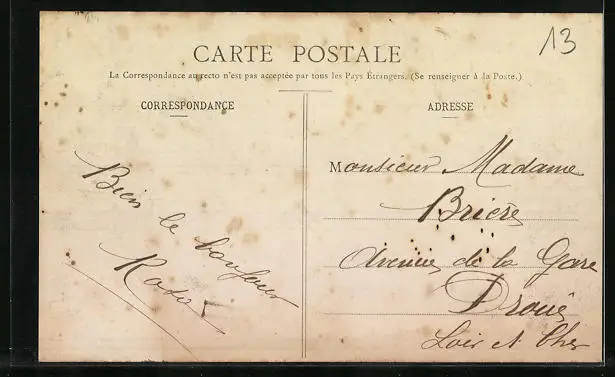 13
CARTE POSTALE
La Correspondance au recto n'est pas acceptée par tous les Pays Étrangers. (Se renseigner à la Poste.)
CORRESPONDANCE
Bien le bonjour
ADRESSE
Monsieur Madame
Brière
Avenue de la Gare
Droué
Loir et Cher